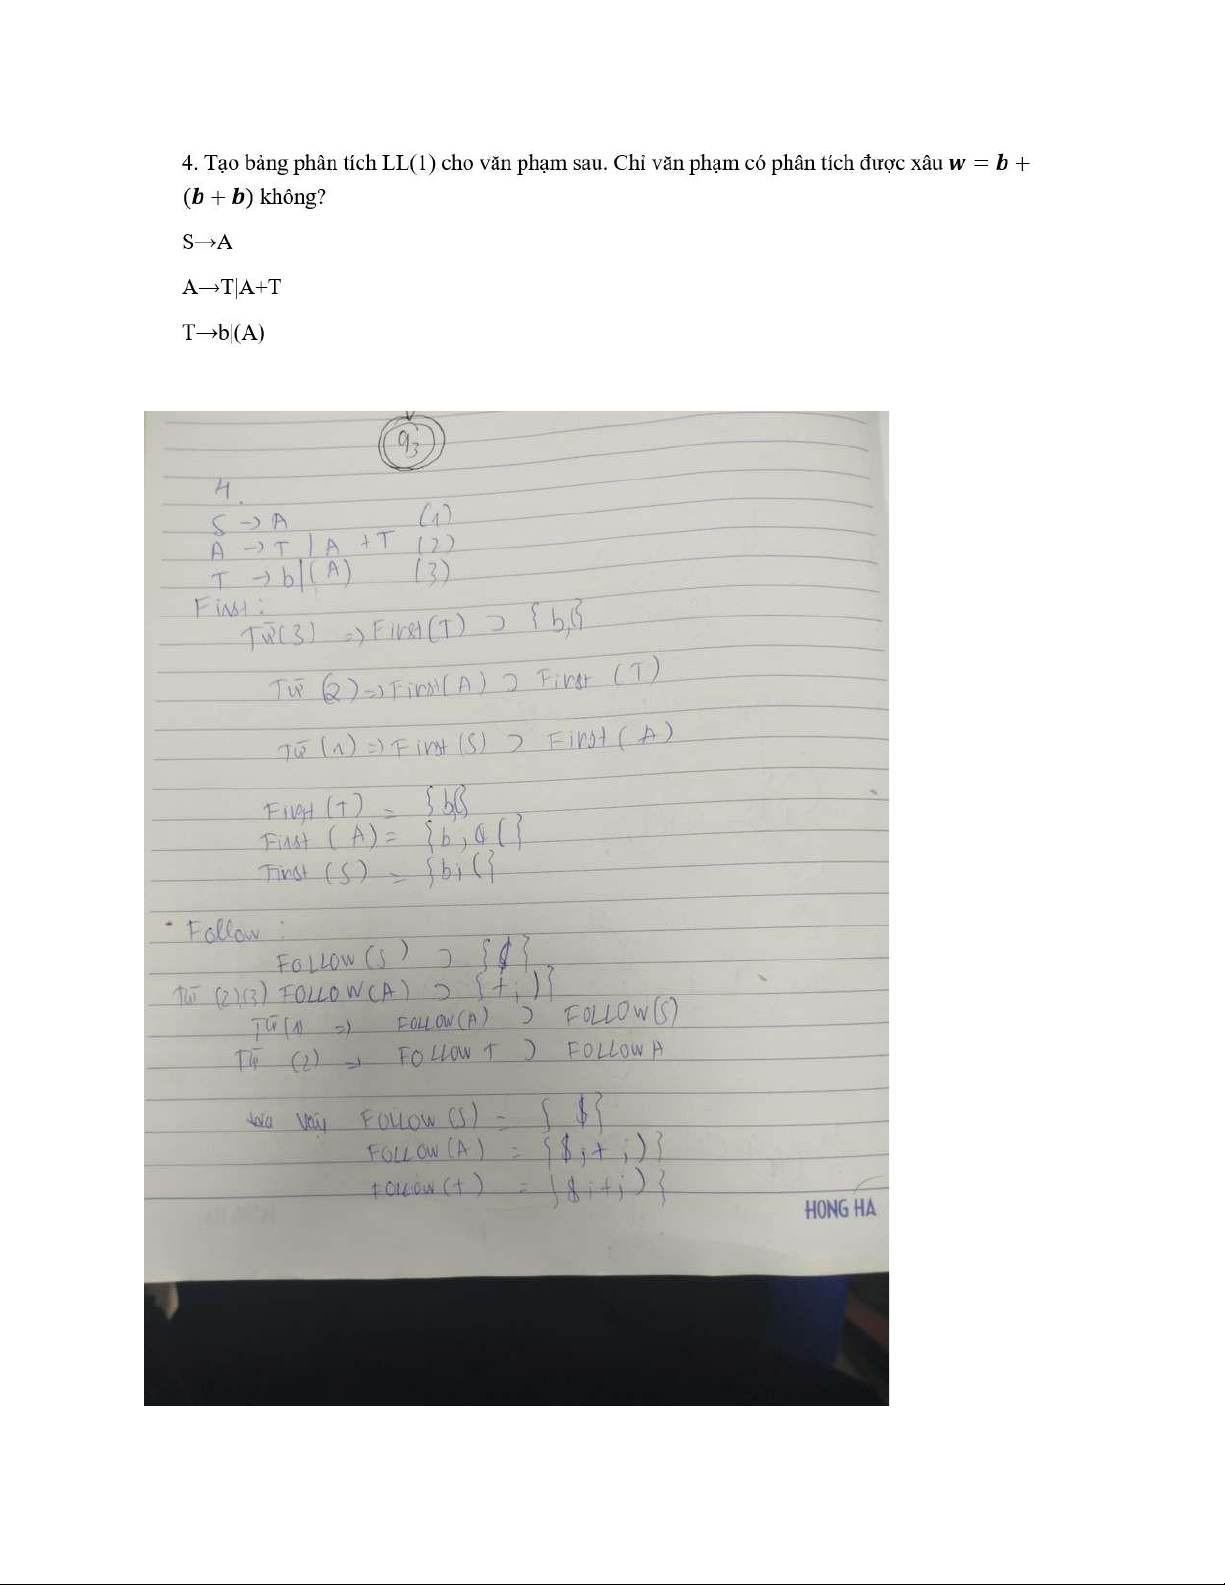 4. Tạo bảng phân tích LL(1) cho văn phạm sau. Chỉ văn phạm có phân tích được xâu w = b +
(b + b) không?
S→A
A→T|A+T
T→b|(A)
q3
4.
S → A (1)
A → T | A + T (2)
T → b|(A) (3)
First:
Từ (3) => First(T) ⊃ {b,(}
Từ (2) => First(A) ⊃ First (T)
Từ (1) => First(S) ⊃ First(A)
First (T) = {b,(}
First (A) = {b, (}
First (S) = {b, (}
Follow:
FOLLOW(S) ⊃ {$}
Từ (2)(3) FOLLOW(A) ⊃ {+;)}
Từ (1) => FOLLOW(A) ⊃ FOLLOW(S)
Từ (2) => FOLLOW T ⊃ FOLLOW A
Vậy FOLLOW(S) = {$}
FOLLOW(A) = {$;+;)}
FOLLOW(T) = {$;+;)}
HONG HA